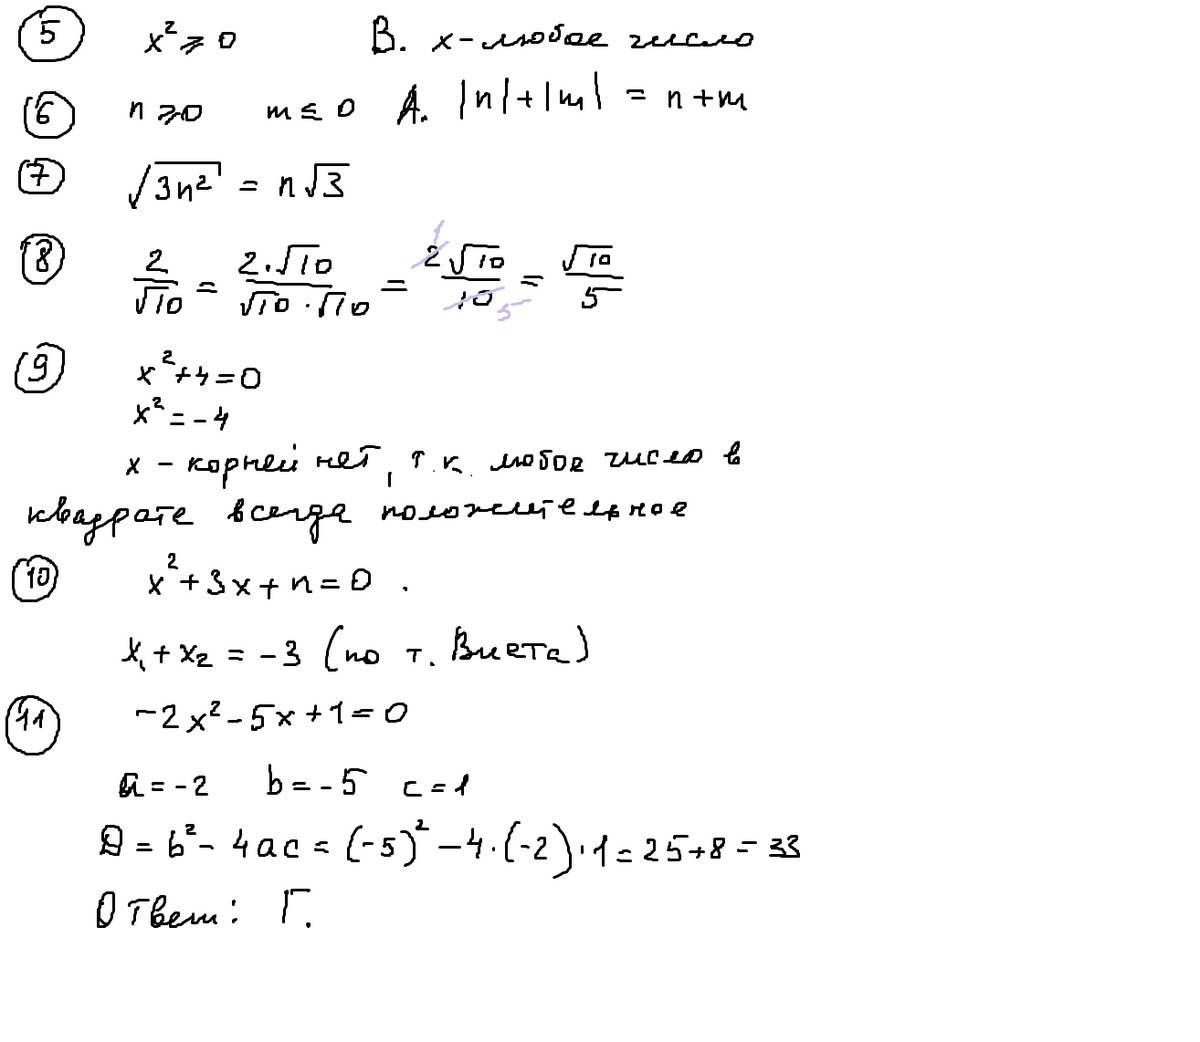 5 x² ⩾ 0 В. x - любое число
6 n ⩾ 0 m ≤ 0 А. |n| + |m| = n + m
7 √3n² = n√3
8 2/√10 = 2·√10/√10·√10 = 2√10/10 = √10/5
1
5
9 x² + 4 = 0
x² = -4
x - корней нет, т.к. любое число в
квадрате всегда положительное
10 x² + 3x + n = 0 .
x₁ + x₂ = -3 (по т. Виета)
11 -2x² - 5x + 1 = 0
a = -2 b = -5 c = 1
D = b² - 4ac = (-5)² - 4·(-2)·1 = 25 + 8 = 33
Ответ: Г.